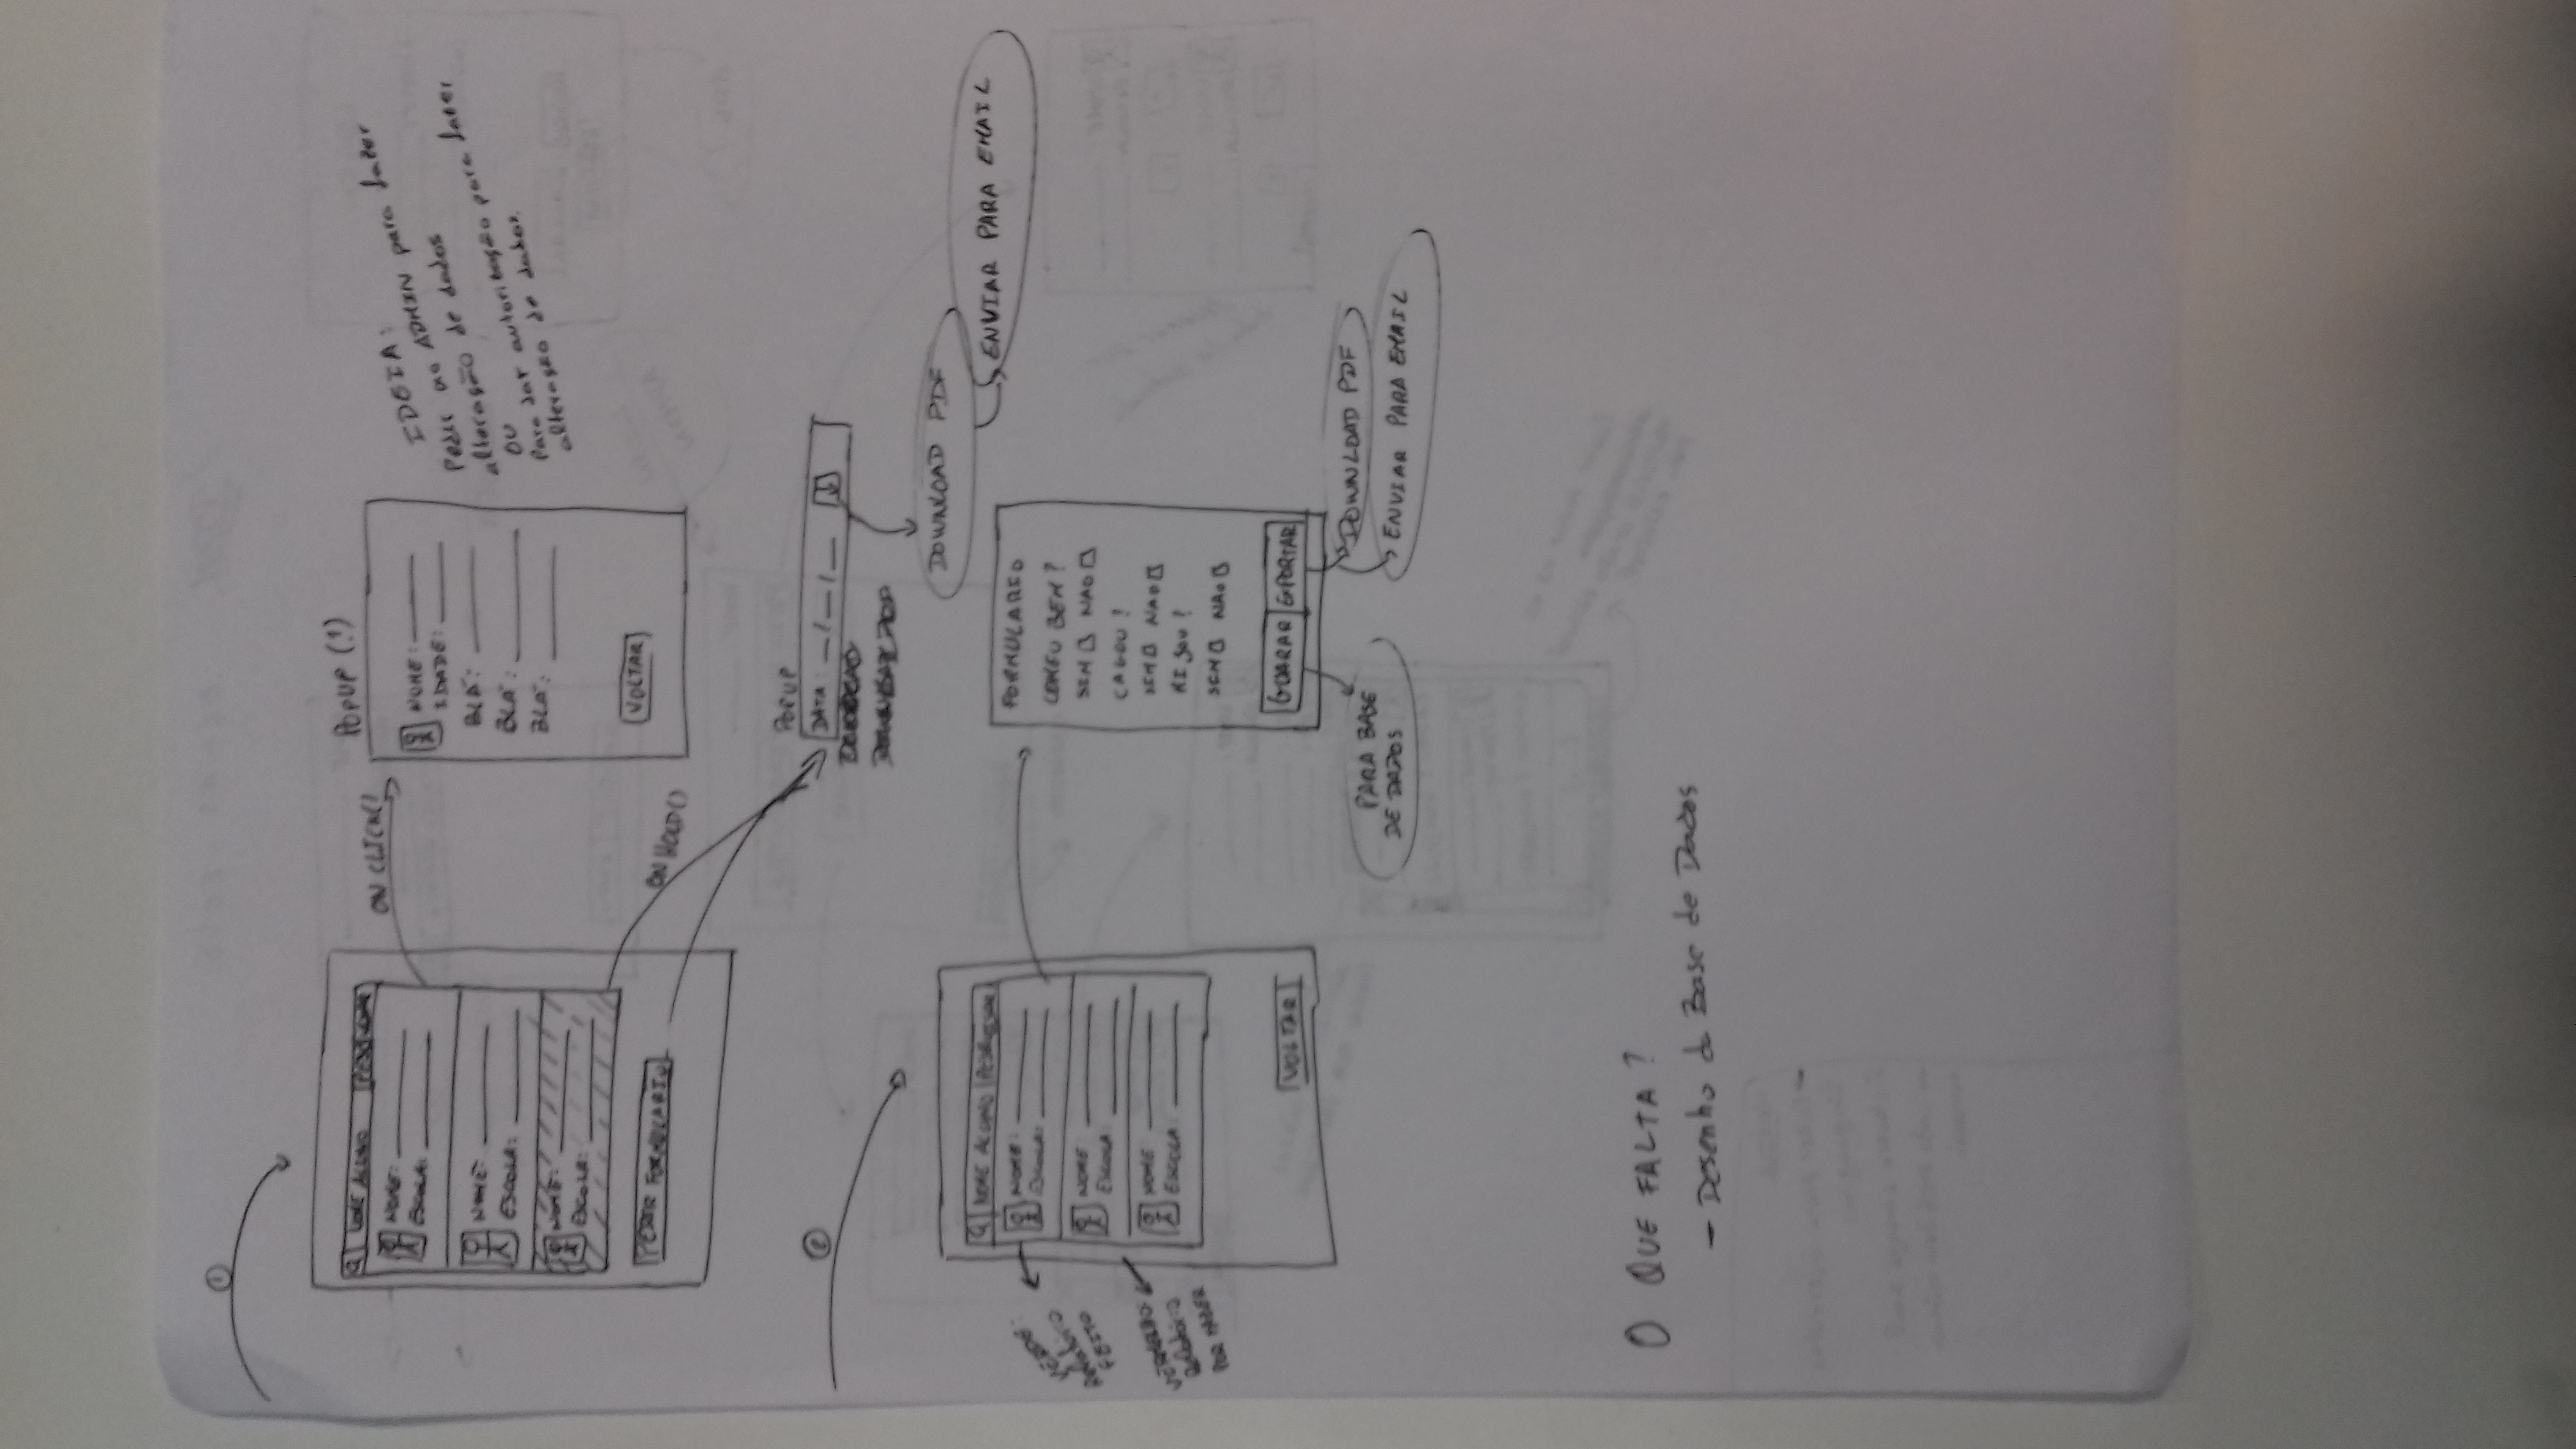 1
NOME ALUNO PESQUISAR
NOME:
ESCOLA:
NOME:
ESCOLA:
NOME:
ESCOLA:
PEDIR FORMULARIO
ON CLICK()
ON HOLD()
POPUP (!)
NOME:
IDADE:
BLÁ:
BLÁ:
BLÁ:
VOLTAR
IDEIA:
Pedir ao ADMIN para fazer
alteração de dados
OU
Para dar autorização para fazer
alteração de dados.
POPUP
DATA: __/__/__
DOWNLOAD PDF
ENVIAR PARA EMAIL
2
NOME ALUNO PESQUISAR
NOME:
ESCOLA:
NOME
ESCOLA:
NOME
ESCOLA:
VOLTAR
VERDE:
Relatório
FEITO
VERMELHO:
Relatório
POR FAZER
FORMULARIO
COMEU BEM?
SIM NAO
CAGOU?
SIM NAO
MIJOU?
SIM NAO
GUARAR EXPORTAR
PARA BASE
DE DADOS
DOWNLOAD PDF
ENVIAR PARA EMAIL
O QUE FALTA?
- Desenho da Base de Dados